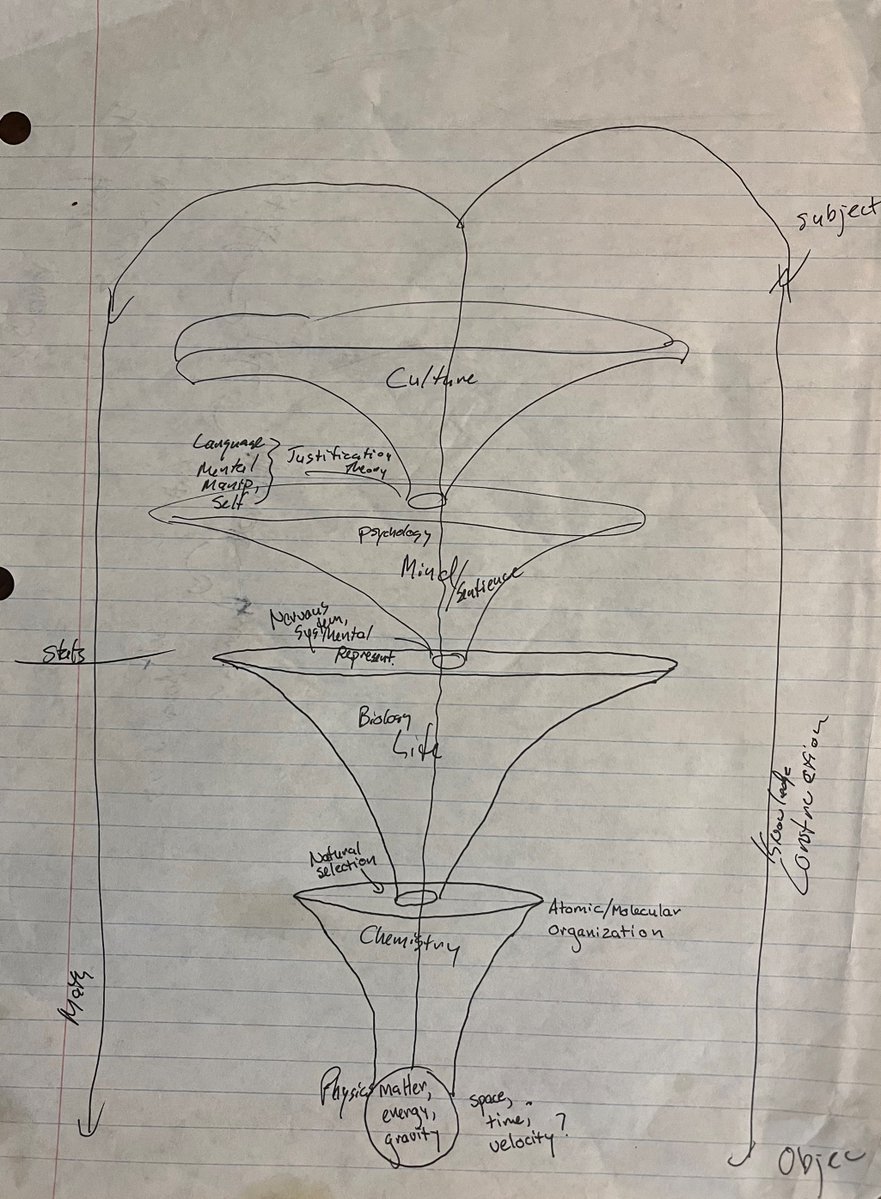 subject
Culture
Language
Mental
Manip,
Self
Justification
Theory
Psychology
Mind/
Sentience
Nervous
System,
Mental
Represent.
Stats
Biology
Life
Knowledge
Construction
Natural
selection
Atomic/Molecular
Organization
Chemistry
Math
Physics
Matter,
energy,
gravity
space,
time,
velocity?
Objec